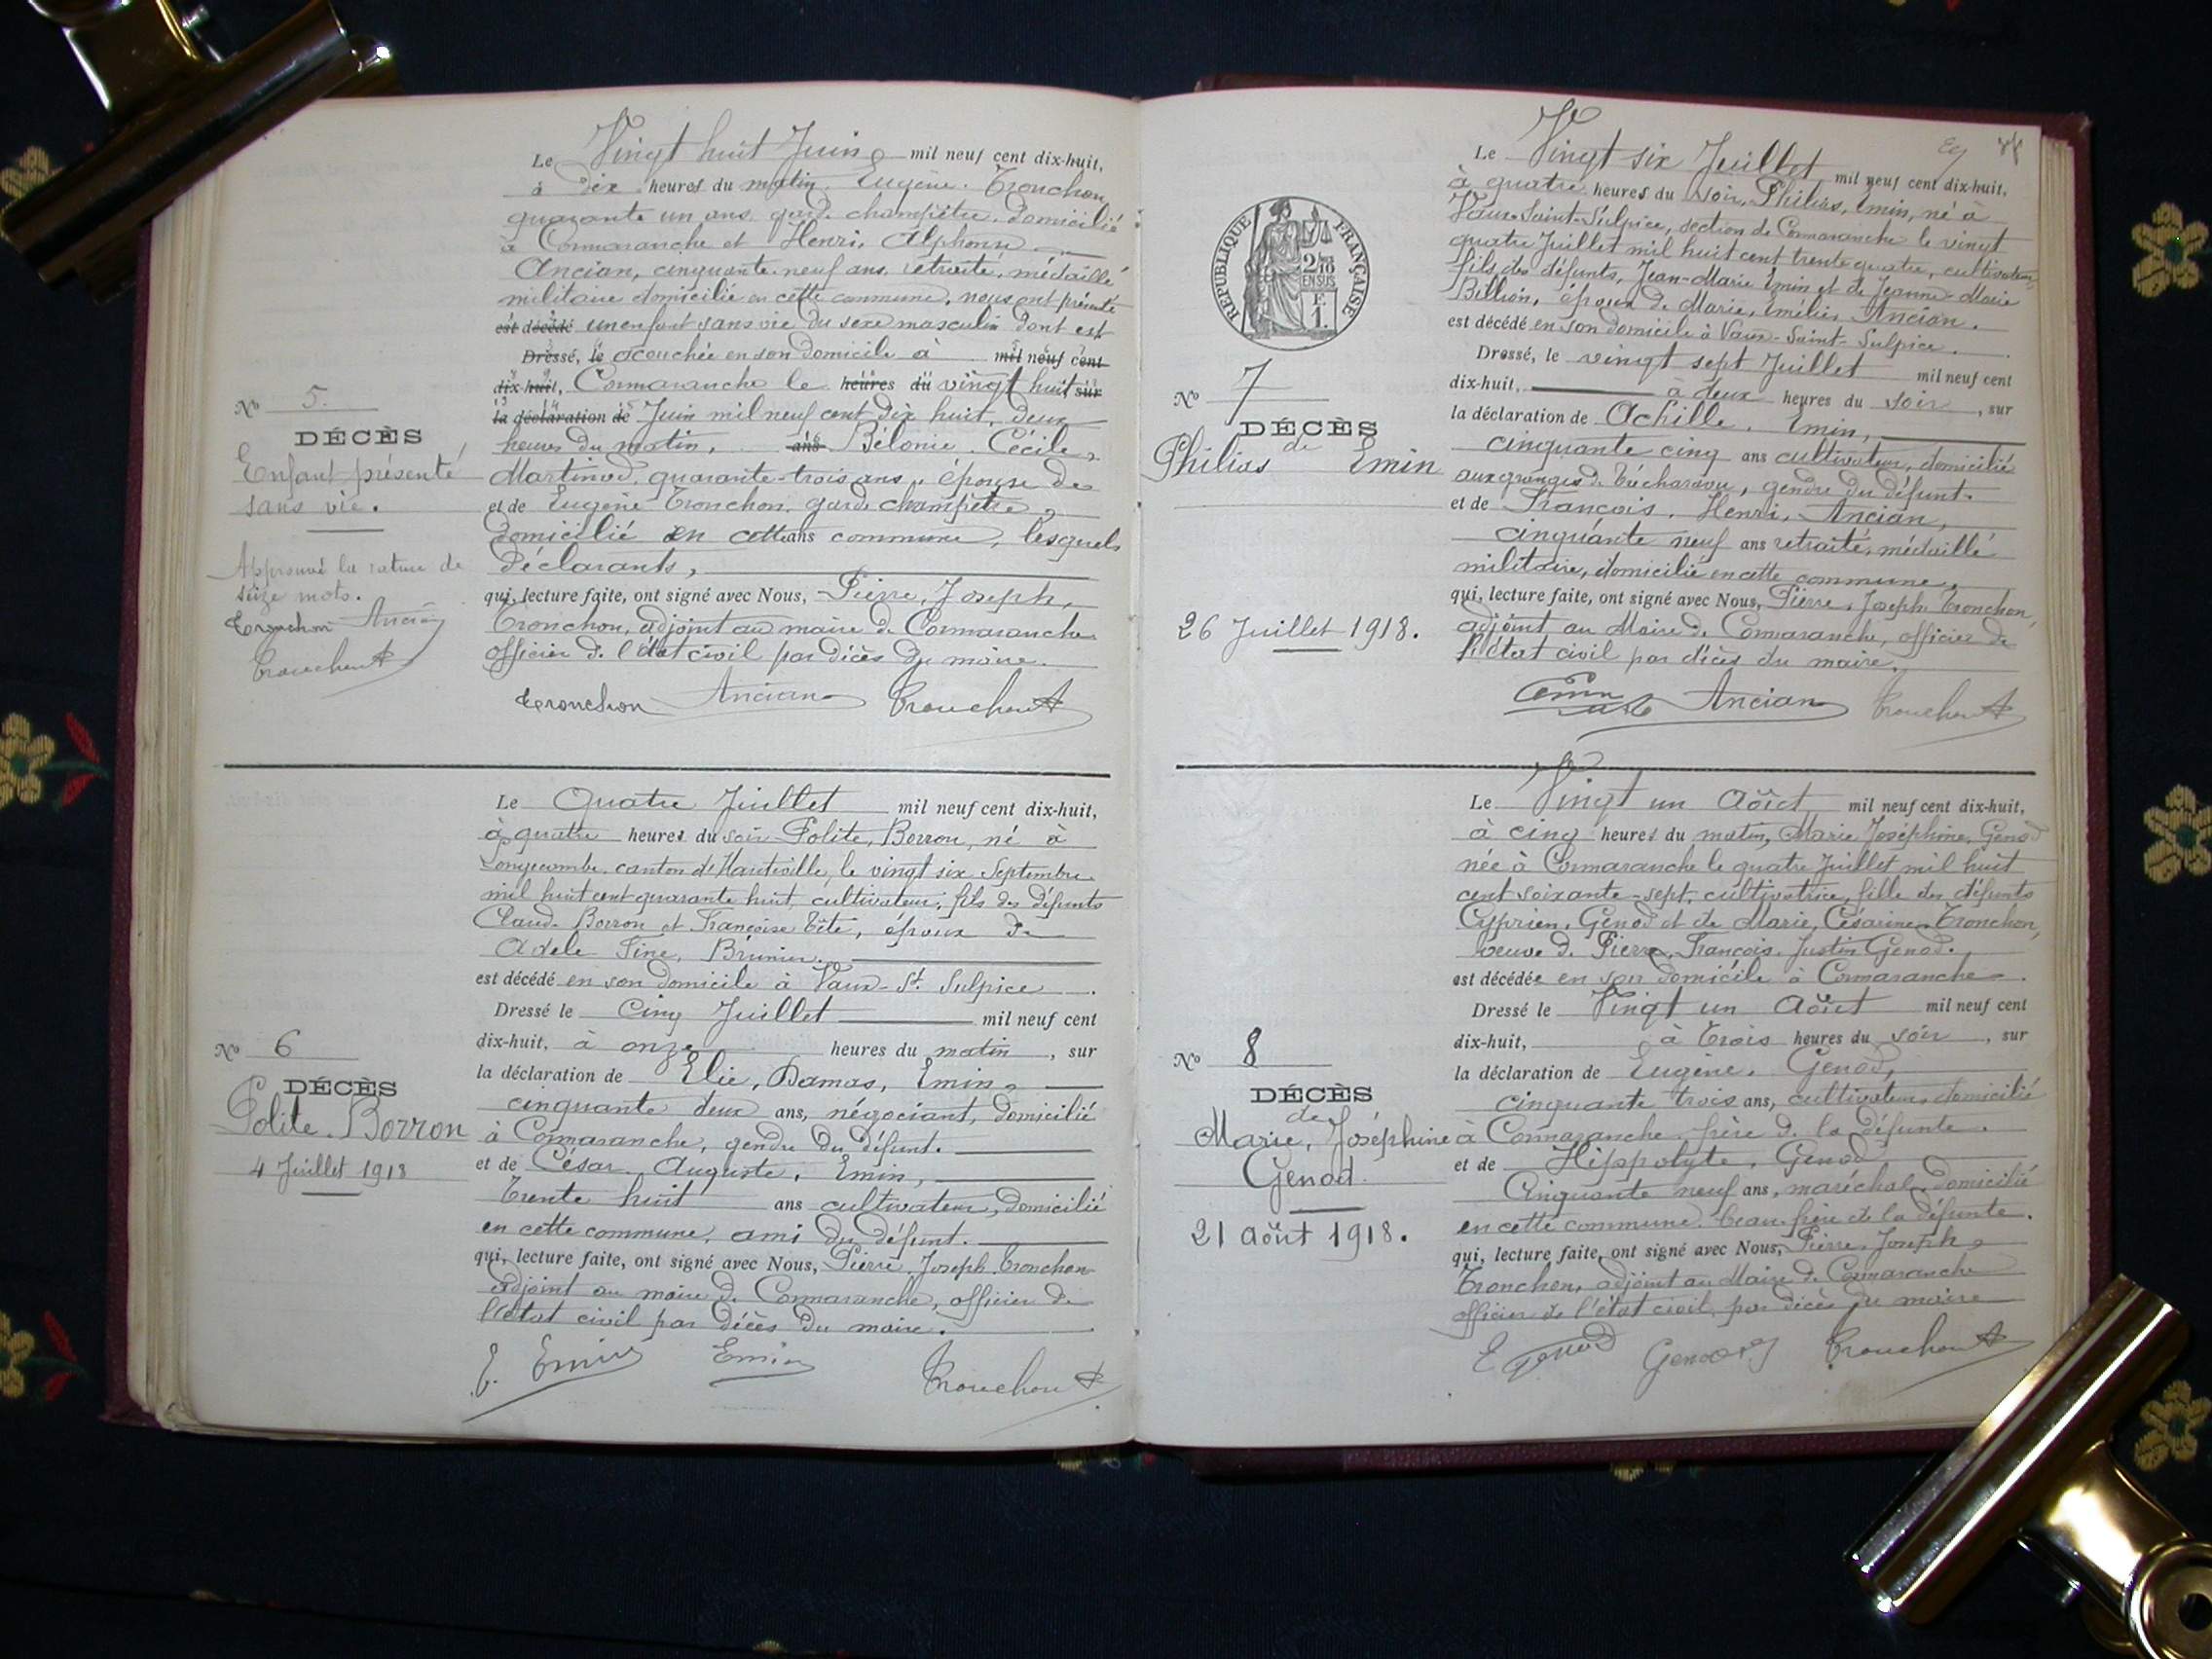 Le Vingt huit Juin mil neuf cent dix-huit,
à dix heures du matin. Eugène. Tronchon
quarante un ans garde champêtre, domicilié
à Cormaranche et Henri, Alphonse
Ancian, cinquante-neuf ans, retraité, médaillé
militaire domicilié en cette commune, nous ont présenté
est décédé un enfant sans vie du sexe masculin dont est
Dressé, le acouchée en son domicile à mil neuf cent
dix-huit, Cormaranche le heures du vingt huit sur
la déclaration de Juin mil neuf cent dix huit, deux
heures du matin, ans Bélonie. Cécile,
Martinod, quarante-trois ans, épouse de
et de Eugène Tronchon, garde champêtre,
domicilié en cette ans commune, lesquels
déclarants,
qui, lecture faite, ont signé avec Nous, Pierre, Joseph,
Tronchon, adjoint au maire de Cormaranche
officier de l'état civil par décès du maire.
Tronchon Ancian Tronchon
No 5.
DÉCÈS
Enfant présenté
sans vie.
Approuvé la rature de
seize mots.
Tronchon Ancian
Tronchon
Le Quatre Juillet mil neuf cent dix-huit,
à quatre heures du soir Polite, Borron, né à
Longecombe, canton d'Hauteville, le vingt six Septembre
mil huit cent quarante huit, cultivateur, fils des défunts
Claude Borron et Françoise Tête, époux de
Adèle Fine, Brunier.
est décédé en son domicile à Vaux-St. Sulpice.
Dressé le Cinq Juillet mil neuf cent
dix-huit, à onze heures du matin, sur
la déclaration de Elie, Damas, Emin,
cinquante deux ans, négociant, domicilié
à Cormaranche, gendre du défunt.
et de César. Auguste. Emin,
trente huit ans cultivateur, domicilié
en cette commune, ami du défunt.
qui, lecture faite, ont signé avec Nous, Pierre, Joseph. Tronchon
adjoint au maire de Cormaranche, officier de
l'état civil par décès du maire.
E. Emin Emin Tronchon
No 6
DÉCÈS
Polite. Borron
4 Juillet 1918
Le Vingt six Juillet mil neuf cent dix-huit,
à quatre heures du soir, Philias, Emin, né à
Vaux-Saint-Sulpice, section de Cormaranche le vingt
quatre Juillet mil huit cent trente quatre, cultivateur,
fils des défunts, Jean-Marie Emin et de Jeanne-Marie
Billion, époux de Marie, Emélie, Ancian.
est décédé en son domicile à Vaux-Saint-Sulpice.
Dressé, le vingt sept Juillet mil neuf cent
dix-huit, à deux heures du soir, sur
la déclaration de Achille. Emin,
cinquante cinq ans cultivateur, domicilié
aux granges de, gendre du défunt.
et de François. Henri, Ancian,
cinquante neuf ans retraité, médaillé
militaire, domicilié en cette commune,
qui, lecture faite, ont signé avec Nous, Pierre, Joseph Tronchon,
adjoint au Maire de Cormaranche, officier de
l'état civil par décès du maire.
Emin Ancian Tronchon
REPUBLIQUE FRANÇAISE
2/10
EN SUS
F.
1.
No 7
DÉCÈS
de
Philias Emin
26 Juillet 1918.
Le Vingt un Août mil neuf cent dix-huit,
à cinq heures du matin, Marie Joséphine, Genod
née à Cormaranche le quatre Juillet mil huit
cent soixante-sept, cultivatrice, fille des défunts
Cyprien, Genod et de Marie, Césarine Tronchon,
veuve de Pierre, François, Justin Genod.
est décédée en son domicile à Cormaranche.
Dressé le Vingt un Août mil neuf cent
dix-huit, à trois heures du soir, sur
la déclaration de Eugène. Genod,
cinquante trois ans, cultivateur domicilié
à Cormaranche, frère de la défunte.
et de Hippolyte, Genod
Cinquante neuf ans, maréchal, domicilié
en cette commune, beau-frère de la défunte.
qui, lecture faite, ont signé avec Nous, Pierre, Joseph,
Tronchon, adjoint au Maire de Cormaranche
officier de l'état civil, par décès du maire
E Genod Genod Tronchon
No 8
DÉCÈS
de
Marie, Joséphine
Genod
21 Août 1918.